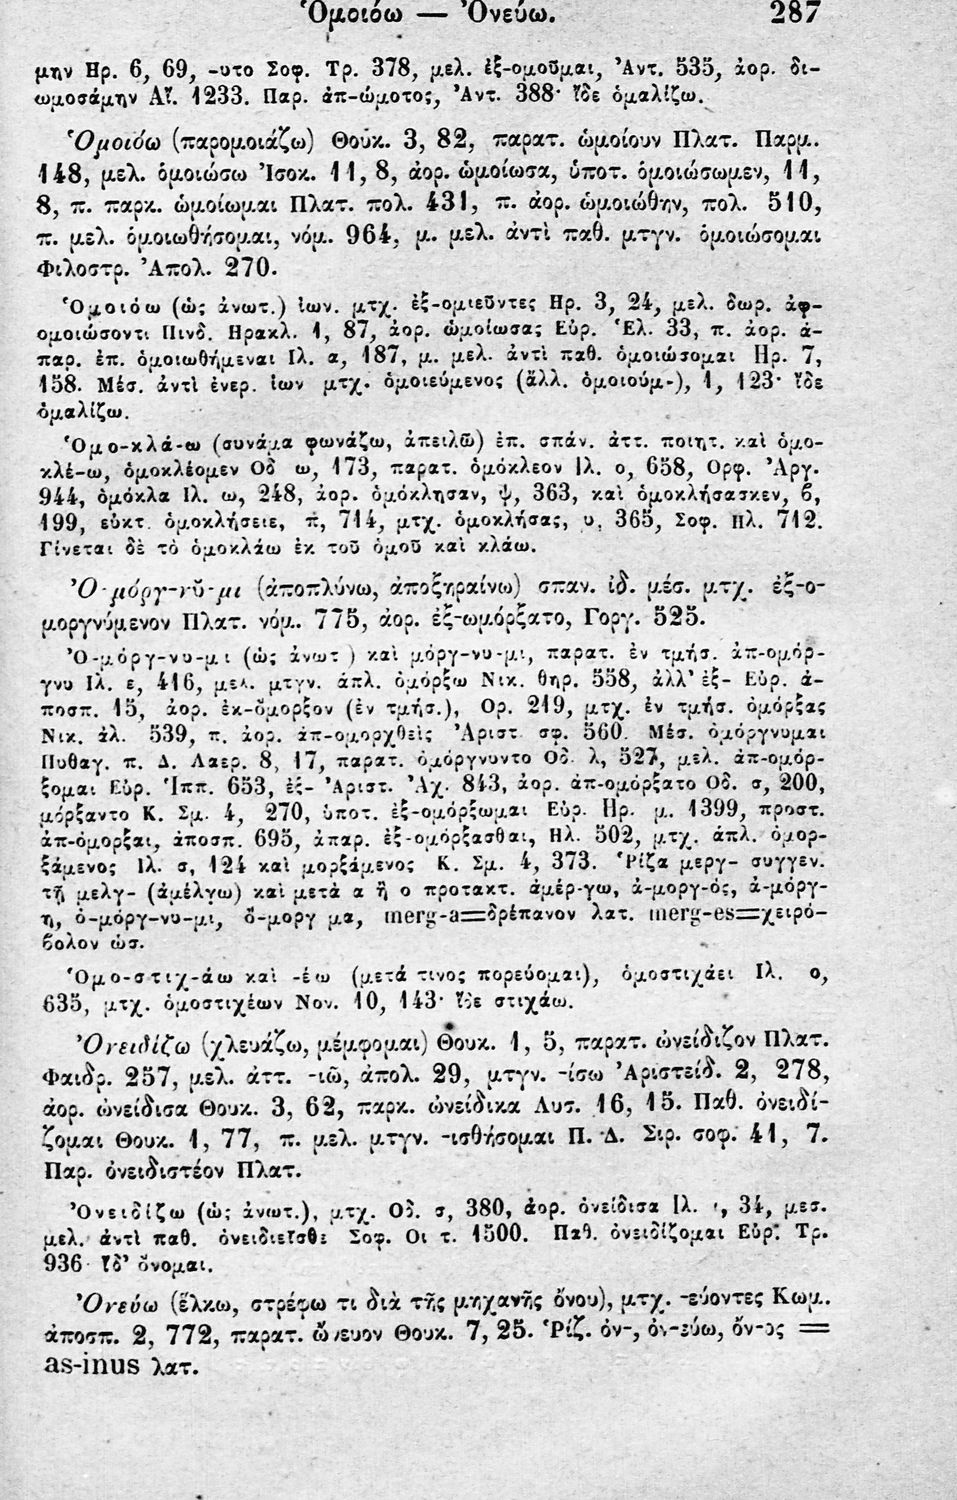 Ὁμοιόω — Ὀνεύω. 287
μην Ηρ. 6, 69, -υτο Σοφ. Τρ. 378, μελ. ἐξ-ομοῦμαι, Ἀντ. 535, ἀορ. δι-
ωμοσάμην Αἴ. 1233. Παρ. ἀπ-ώμοτος, Ἀντ. 388· ἴδε ὁμαλίζω.
Ὁμοιόω (παρομοιάζω) Θουκ. 3, 82, παρατ. ὡμοίουν Πλατ. Παρμ.
148, μελ. ὁμοιώσω Ἰσοκ. 11, 8, ἀορ. ὡμοίωσα, ὑποτ. ὁμοιώσωμεν, 11,
8, π. παρκ. ὡμοίωμαι Πλατ. πολ. 431, π. ἀορ. ὡμοιώθην, πολ. 510,
π. μελ. ὁμοιωθήσομαι, νόμ. 964, μ. μελ. ἀντὶ παθ. μτγν. ὁμοιώσομαι
Φιλοστρ. Ἀπολ. 270.
Ὁμοιόω (ὡς ἀνωτ.) ἰων. μτχ. ἐξ-ομιεῦντες Ηρ. 3, 24, μελ. δωρ. ἀφ-
ομοιώσοντι Πινδ. Ηρακλ. 1, 87, ἀορ. ὡμοίωσας Εὐρ. Ἑλ. 33, π. ἀορ. ἀ-
παρ. ἐπ. ὁμοιωθήμεναι Ιλ. α, 187, μ. μελ. ἀντὶ παθ. ὁμοιώσομαι Ηρ. 7,
158. Μέσ. ἀντὶ ἐνερ. ἰων μτχ. ὁμοιεύμενος (ἄλλ. ὁμοιούμ-), 1, 123· ἴδε
ὁμαλίζω.
Ὁμο-κλά-ω (συνάμα φωνάζω, ἀπειλῶ) ἐπ. σπάν. ἀττ. ποιητ. καὶ ὁμο-
κλέ-ω, ὁμοκλέομεν Οδ ω, 173, παρατ. ὁμόκλεον Ιλ. ο, 658, Ορφ. Ἀργ.
944, ὁμόκλα Ιλ. ω, 248, ἀορ. ὁμόκλησαν, ψ, 363, καὶ ὁμοκλήσασκεν, β,
199, εὐκτ. ὁμοκλήσειε, π, 714, μτχ. ὁμοκλήσας, υ, 365, Σοφ. Ηλ. 712.
Γίνεται δὲ τὸ ὁμοκλάω ἐκ τοῦ ὁμοῦ καὶ κλάω.
Ὀ-μόργ-νῡ-μι (ἀποπλύνω, ἀποξηραίνω) σπαν. ἰδ. μέσ. μτχ. ἐξ-ο-
μοργνύμενον Πλατ. νόμ. 775, ἀορ. ἐξ-ωμόρξατο, Γοργ. 525.
Ὀ-μόργ-νυ-μι (ὡς ἀνωτ ) καὶ μόργ-νυ-μι, παρατ. ἐν τμήσ. ἀπ-ομόρ-
γνυ Ιλ. ε, 416, μελ. μτγν. ἁπλ. ὀμόρξω Νικ. θηρ. 558, ἀλλ' ἐξ- Εὐρ. ἀ-
ποσπ. 15, ἀορ. ἐκ-ὄμορξον (ἐν τμήσ.), Ορ. 219, μτχ. ἐν τμήσ. ὀμόρξας
Νικ. ἀλ. 539, π. ἀορ. ἀπ-ομορχθεὶς Ἀριστ. σφ. 560. Μέσ. ὀμόργνυμαι
Πυθαγ. π. Δ. Λαερ. 8, 17, παρατ. ὀμόργνυντο Οδ. λ, 527, μελ. ἀπ-ομόρ-
ξομαι Εὐρ. Ἱππ. 653, ἐξ- Ἀριστ. Ἀχ. 843, ἀορ. ἀπ-ομόρξατο Οδ. σ, 200,
μόρξαντο Κ. Σμ. 4, 270, ὑποτ. ἐξ-ομόρξωμαι Εὐρ. Ηρ. μ. 1399, προστ.
ἀπ-όμορξαι, ἀποσπ. 695, ἀπαρ. ἐξ-ομόρξασθαι, Ηλ. 502, μτχ. ἁπλ. ὀμορ-
ξάμενος Ιλ. σ, 124 καὶ μορξάμενος Κ. Σμ. 4, 373. Ῥίζα μεργ- συγγεν.
τῇ μελγ- (ἀμέλγω) καὶ μετὰ α ἢ ο προτακτ. ἀμέρ-γω, ἀ-μοργ-ός, ἀ-μόργ-
η, ὀ-μόργ-νυ-μι, ὄ-μοργ μα, merg-a=δρέπανον λατ. merg-es=χειρό-
βολον ὡσ.
Ὁμο-στιχ-άω καὶ -έω (μετά τινος πορεύομαι), ὁμοστιχάει Ιλ. ο,
635, μτχ. ὁμοστιχέων Νον. 10, 143· ἴδε στιχάω.
Ὀνειδίζω (χλευάζω, μέμφομαι) Θουκ. 1, 5, παρατ. ὠνείδιζον Πλατ.
Φαιδρ. 257, μελ. ἀττ. -ιῶ, ἀπολ. 29, μτγν. -ίσω Ἀριστείδ. 2, 278,
ἀορ. ὠνείδισα Θουκ. 3, 62, παρκ. ὠνείδικα Λυσ. 16, 15. Παθ. ὀνειδί-
ζομαι Θουκ. 1, 77, π. μελ. μτγν. -ισθήσομαι Π. Δ. Σιρ. σοφ. 41, 7.
Παρ. ὀνειδιστέον Πλατ.
Ὀνειδίζω (ὡς ἀνωτ.), μτχ. Οδ. σ, 380, ἀορ. ὀνείδισα Ιλ. 34, μεσ.
μελ. ἀντὶ παθ. ὀνειδιεῖσθε Σοφ. Οι τ. 1500. Παθ. ὀνειδίζομαι Εὐρ. Τρ.
936· ἴδ' ὄνομαι.
Ὀνεύω (ἕλκω, στρέφω τι διὰ τῆς μηχανῆς ὄνου), μτχ. -εύοντες Κωμ.
ἀποσπ. 2, 772, παρατ. ὤνευον Θουκ. 7, 25. Ῥίζ. ὀν-, ὀν-εύω, ὄν-ος =
as-inus λατ.